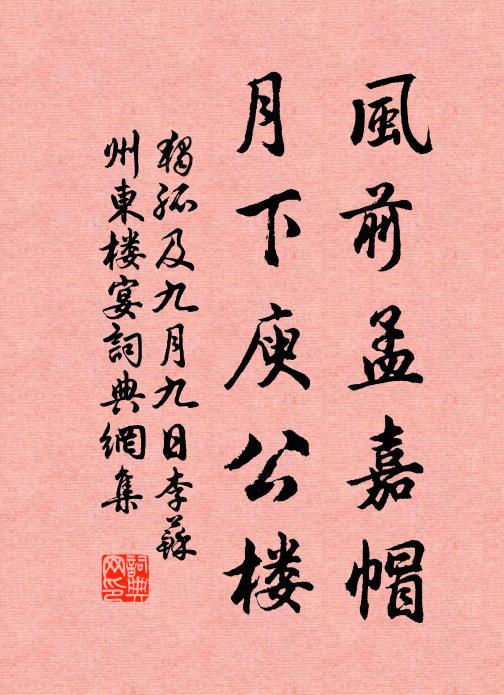 風前孟嘉帽
月下庾公楼
獨孤及九月九日李蘇
州東楼宴詞典網集
詞典
网印